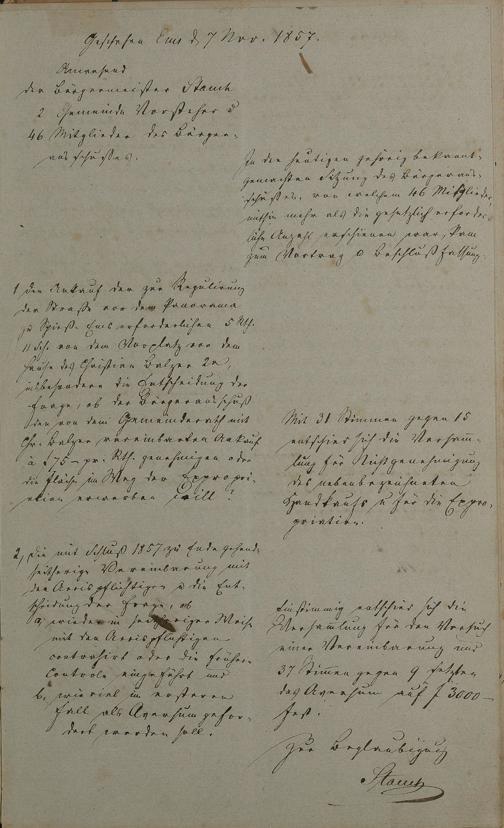 Geschehen Ems d. 7 Nov. 1857.
Anwesend
der Bürgermeister Stamm
2 Gemeinde Vorsteher u
46 Mitglieder des Bürger-
ausschußes.
In der heutigen gehörig bekannt-
gemachten Sitzung des Bürgeraus-
schußes, von welchem 46 Mitglieder
mithin mehr als die gesetzlich erforder-
liche Anzahl erschienen war, kam
zum Vortrag u Beschlußfassung.
1 den Ankauf der zur Regulirung
der Straße vor dem Panorama
zu Spieß-Ems erforderlichen 5 Rth.
11 Sch. von dem Vorplatz vor dem
Hause des Christian Balzer 2r,
insbesondere die Entscheidung der
Frage, ob der Bürgerausschuß
den von dem Gemeinderath mit
Chr. Balzer vereinbarten Ankauf
à f 75 – pr. Rth. genehmigen oder
die Fläche im Weg der Expropri-
ation erwerben will?
Mit 31 Stimmen gegen 15
entschied sich die Versam-
lung für Nichtgenehmigung
des nebenbezeichneten
Handkaufs u für die Expro-
priation.
2, die mit Schluß 1857 zu Ende gehende
seitherige Vereinbarung mit
den Accispflichtigen u die Ent-
scheidung der Frage, ob
a, wieder in seitheriger Weise
mit den Accispflichtigen
contrahirt oder die frühere
Controle eingeführt und
b, wie viel in ersterem
Fall als Aversum gefor-
dert werden soll?
Einstimmig entschied sich die
Versamlung für den Versuch
einer Vereinbarung und
37 Stimmen gegen 9 setzten
das Aversum auf f 3000 –
fest.
Zur Beglaubigung